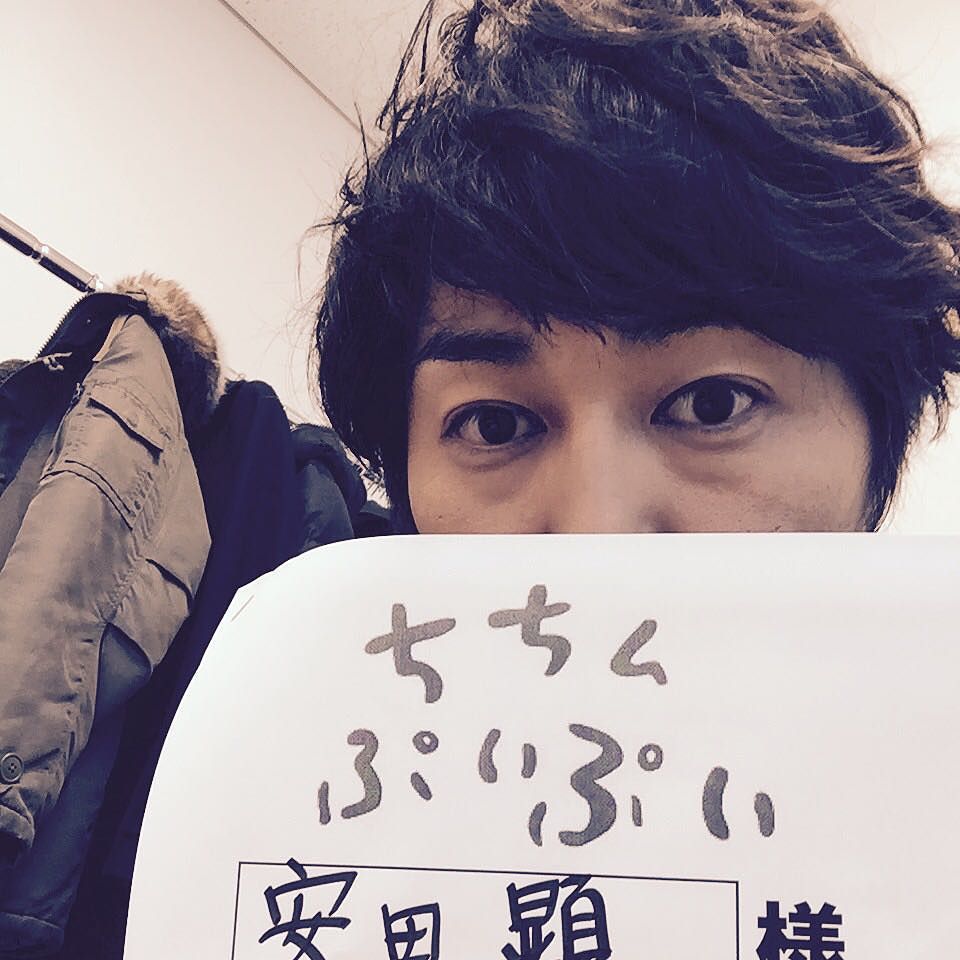 ちちん
ぷいぷい
安田顕 様